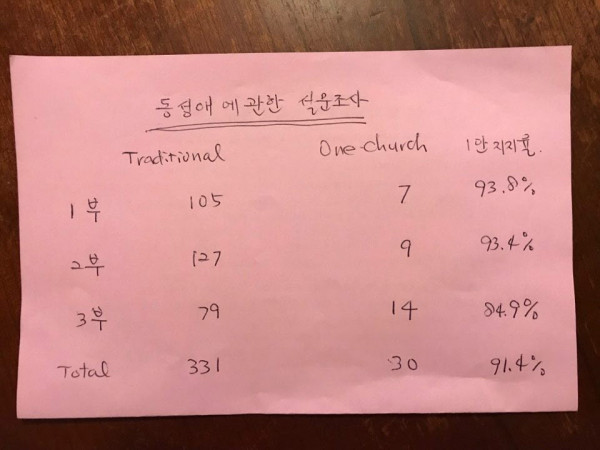 동성애에 관한 설문조사
Traditional One-church 1안 지지률.
1부 105 7 93.8%
2부 127 9 93.4%
3부 79 14 84.9%
Total 331 30 91.4%